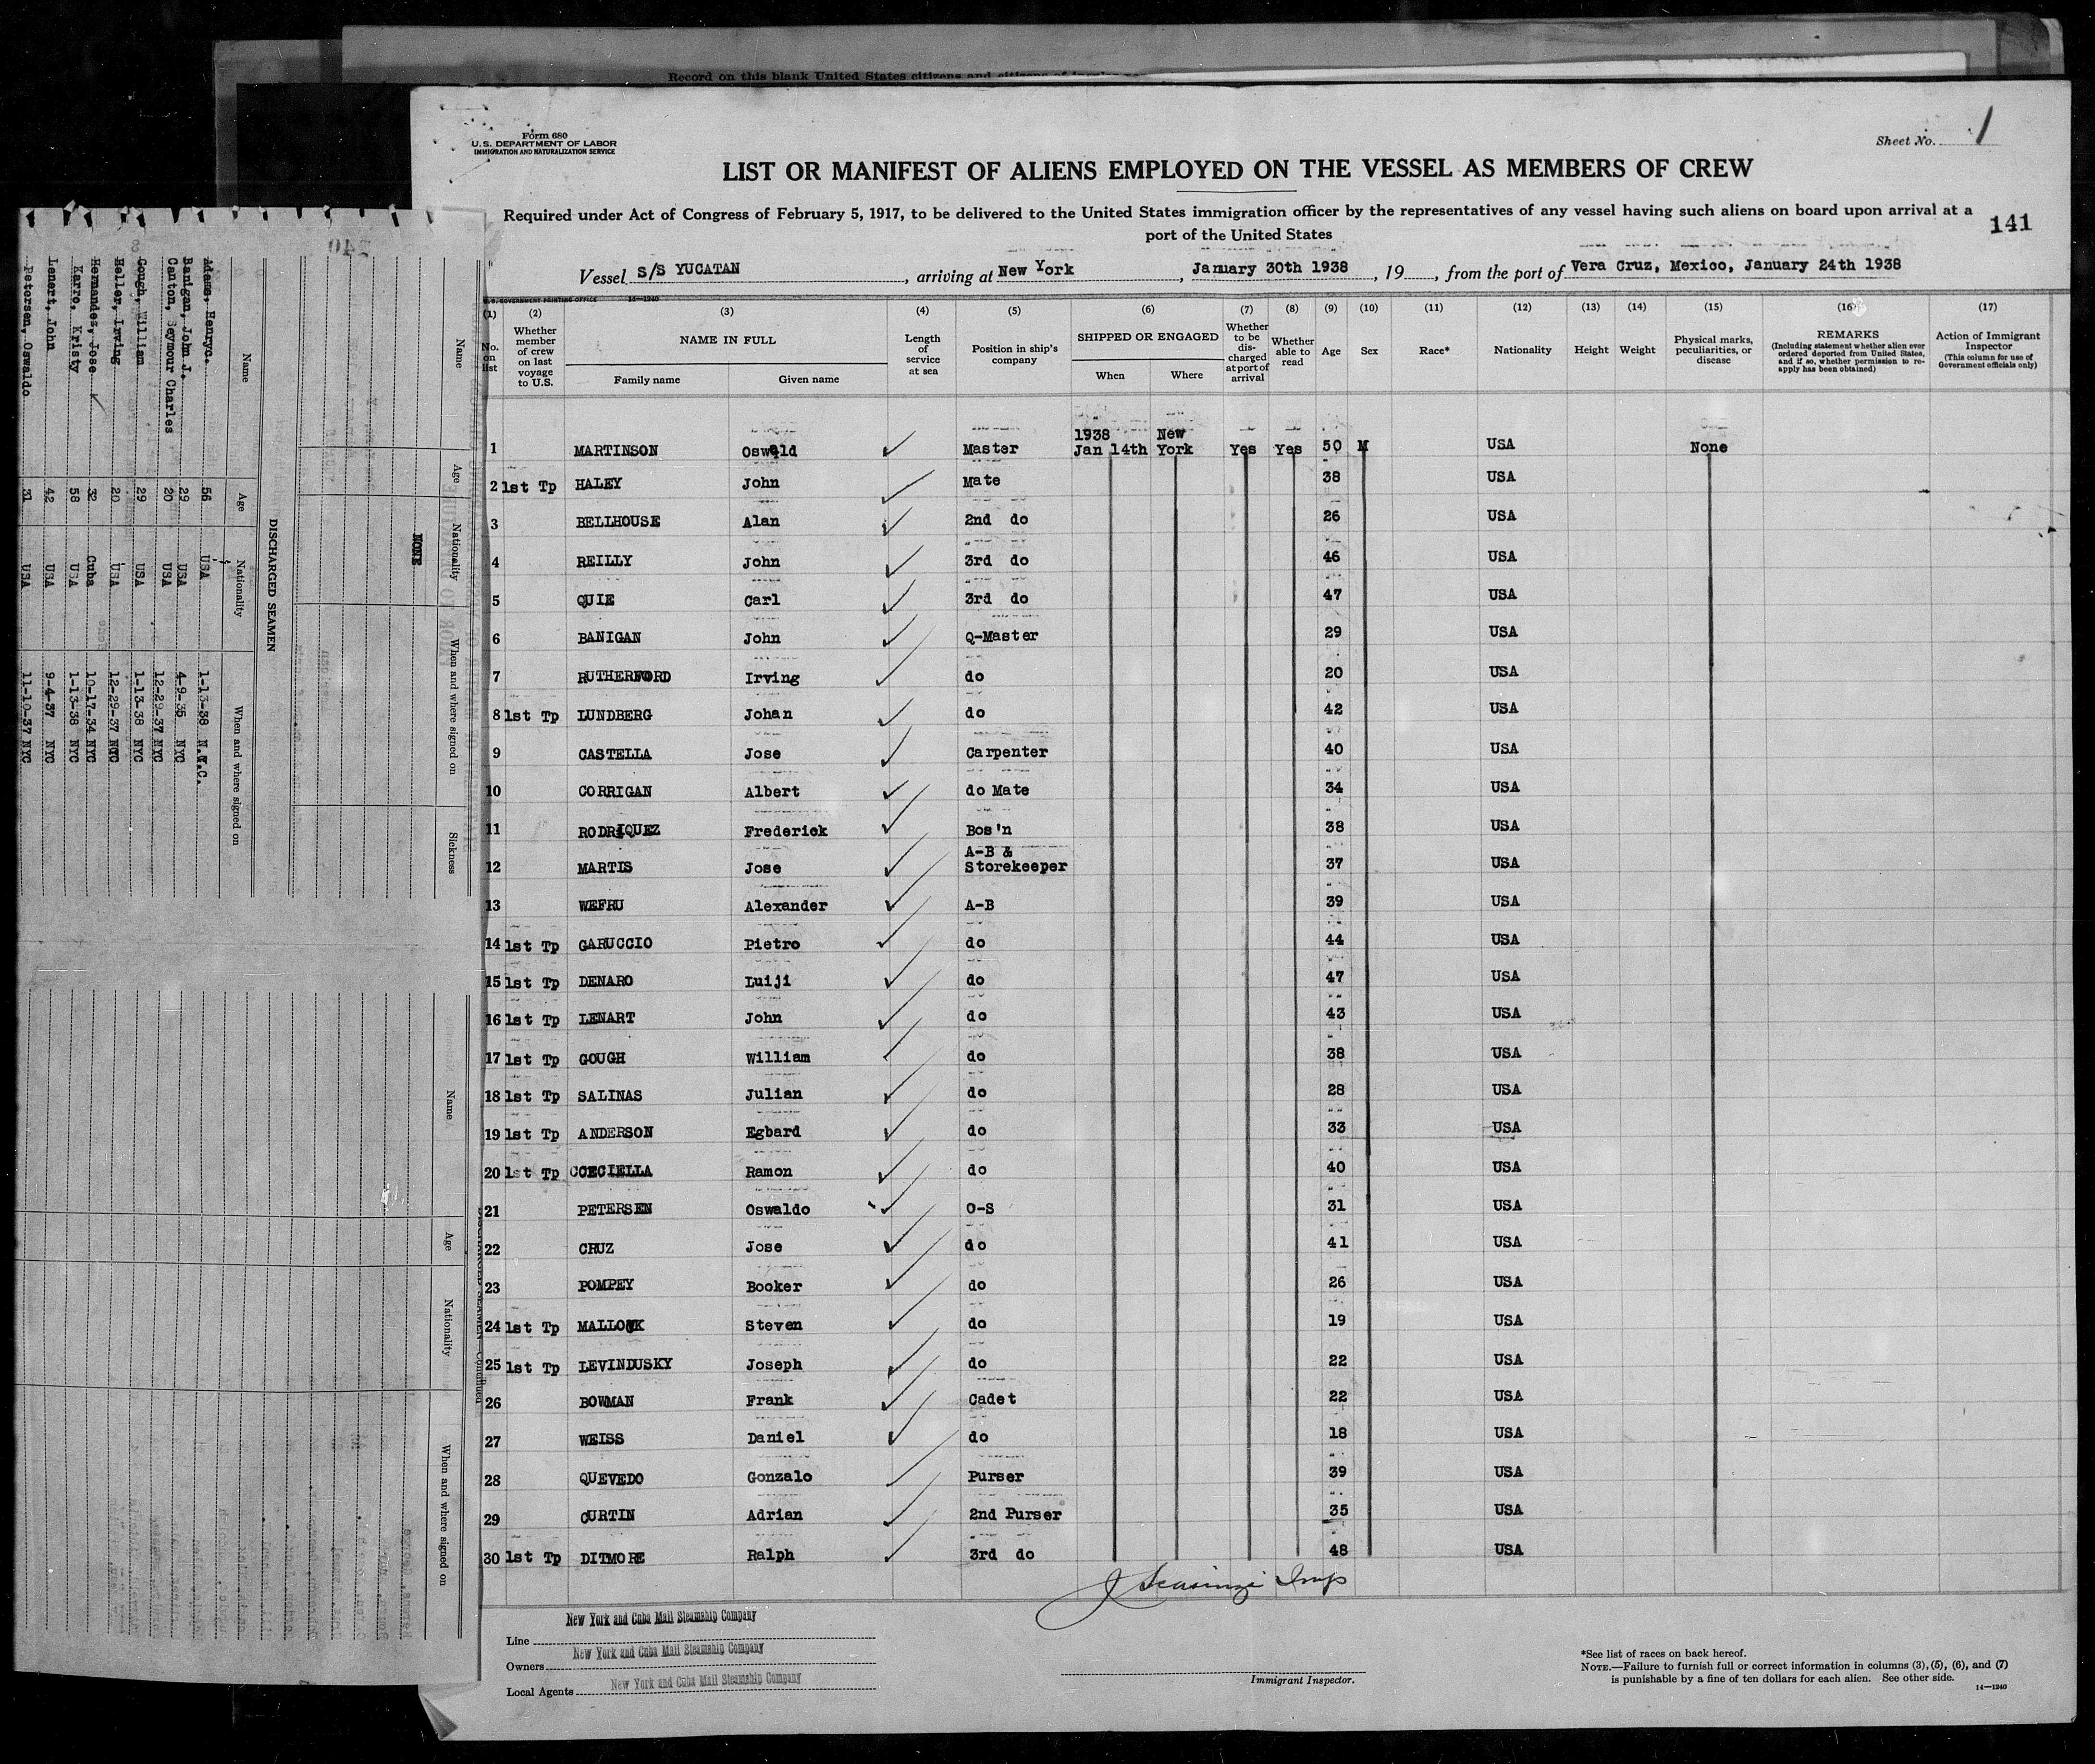 Record on this blank United States citizens and citizens of insular
Form 680
U.S. DEPARTMENT OF LABOR
IMMIGRATION AND NATURALIZATION SERVICE
Sheet No. 1
LIST OR MANIFEST OF ALIENS EMPLOYED ON THE VESSEL AS MEMBERS OF CREW
Required under Act of Congress of February 5, 1917, to be delivered to the United States immigration officer by the representatives of any vessel having such aliens on board upon arrival at a
port of the United States
141
Vessel S/S YUCATAN, arriving at New York, January 30th 1938, 19, from the port of Vera Cruz, Mexico, January 24th 1938
U.S. GOVERNMENT PRINTING OFFICE 14—1240
(1) (2) (3) (4) (5) (6) (7) (8) (9) (10) (11) (12) (13) (14) (15) (16) (17)
No. on list
Whether member of crew on last voyage to U.S.
NAME IN FULL
Family name Given name
Length of service at sea
Position in ship's company
SHIPPED OR ENGAGED
When Where
Whether to be discharged at port of arrival
Whether able to read
Age Sex Race* Nationality Height Weight
Physical marks, peculiarities, or disease
REMARKS
(Including statement whether alien ever ordered deported from United States, and if so, whether permission to reapply has been obtained)
Action of Immigrant Inspector
(This column for use of Government officials only)
1938 New
1 MARTINSON Oswald Master Jan 14th York Yes Yes 50 M USA None
2 1st Tp HALEY John Mate 38 USA
3 BELLHOUSE Alan 2nd do 26 USA
4 REILLY John 3rd do 46 USA
5 QUIE Carl 3rd do 47 USA
6 BANIGAN John Q-Master 29 USA
7 RUTHERFORD Irving do 20 USA
8 1st Tp LUNDBERG Johan do 42 USA
9 CASTELLA Jose Carpenter 40 USA
10 CORRIGAN Albert do Mate 34 USA
11 RODRIQUEZ Frederick Bos'n 38 USA
A-B &
12 MARTIS Jose Storekeeper 37 USA
13 WEFRU Alexander A-B 39 USA
14 1st Tp GARUCCIO Pietro do 44 USA
15 1st Tp DENARO Luiji do 47 USA
16 1st Tp LENART John do 43 USA
17 1st Tp GOUGH William do 38 USA
18 1st Tp SALINAS Julian do 28 USA
19 1st Tp ANDERSON Egbard do 33 USA
20 1st Tp Ramon do 40 USA
21 PETERSEN Oswaldo O-S 31 USA
22 CRUZ Jose do 41 USA
23 POMPEY Booker do 26 USA
24 1st Tp Steven do 19 USA
25 1st Tp LEVINDUSKY Joseph do 22 USA
26 BOWMAN Frank Cadet 22 USA
27 WEISS Daniel do 18 USA
28 QUEVEDO Gonzalo Purser 39 USA
29 CURTIN Adrian 2nd Purser 35 USA
30 1st Tp DITMORE Ralph 3rd do 48 USA
New York and Cuba Mail Steamship Company
Line
New York and Cuba Mail Steamship Company
Owners
New York and Cuba Mail Steamship Company
Local Agents
Immigrant Inspector.
*See list of races on back hereof.
NOTE.—Failure to furnish full or correct information in columns (3), (5), (6), and (7)
is punishable by a fine of ten dollars for each alien. See other side.
14—1240
Name Age Nationality When and where signed on Sickness
NONE
DISCHARGED SEAMEN
Name Age Nationality When and where signed on
Adams, Henry C. 56 USA 1-13-38 N.Y.C.
Banigan, John J. 29 USA 4-9-35 NYC
Canton, Seymour Charles 20 USA 12-29-37 NYC
Gough, William 29 USA 1-13-38 NYC
Heller, Irving 20 USA 12-29-37 NYC
Hermandez, Jose 32 Cuba 10-17-34 NYC
Karro, Kristy 58 USA 1-13-38 NYC
Lenert, John 42 USA 9-4-37 NYC
Petersen, Oswaldo 31 USA 11-10-37 NYC
Name Age Nationality When and where signed on